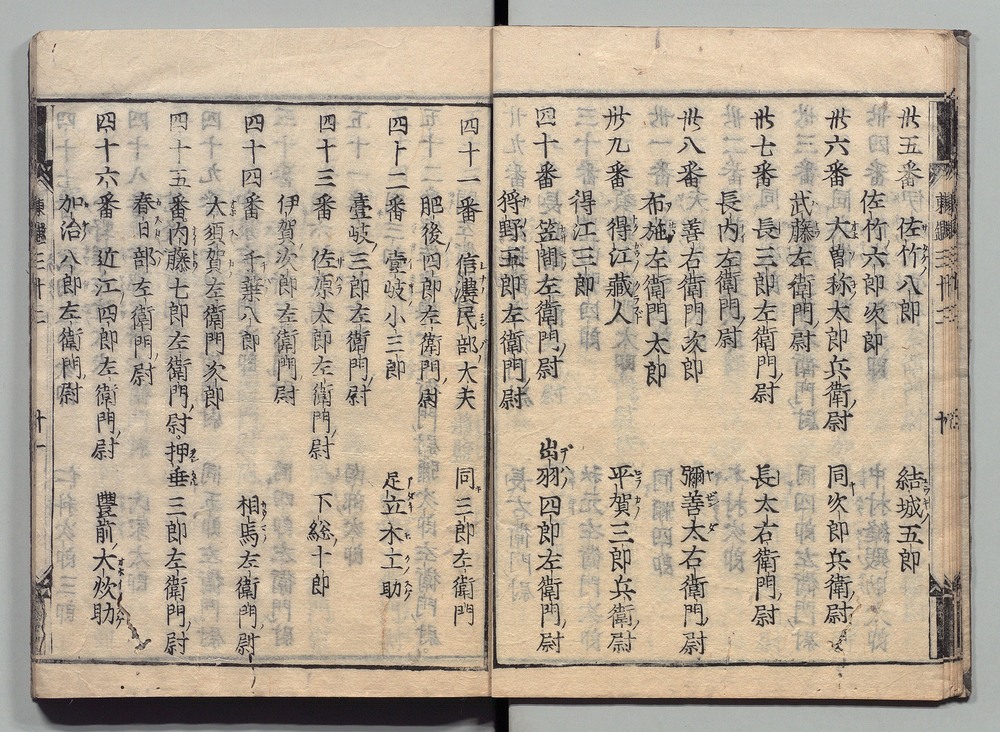 卅五番 佐竹八郎 結城五郎
佐竹六郎次郎
卅六番 大曽祢太郎兵衛尉 同次郎兵衛尉
武藤左衛門尉
卅七番 長三郎左衛門尉 長太右衛門尉
長内左衛門尉
卅八番 善右衛門次郎 彌善太右衛門尉
布施左衛門太郎
卅九番 得江藏人 平賀三郎兵衛尉
得江三郎
四十番 笠間左衛門尉 出羽四郎左衛門尉
狩野五郎左衛門尉
四十一番 信濃民部大夫 同三郎左衛門
肥後四郎左衛門尉
四十二番 壹岐小三郎 足立木工助
壹岐三郎左衛門尉
四十三番 佐原太郎左衛門尉 下総十郎
伊賀次郎左衛門尉
四十四番 千葉八郎 相馬左衛門尉
大須賀左衛門次郎
四十五番 内藤七郎左衛門尉 押垂三郎左衛門尉
春日部左衛門尉
四十六番 近江四郎左衛門尉 豐前大炊助
加治八郎左衛門尉
十一